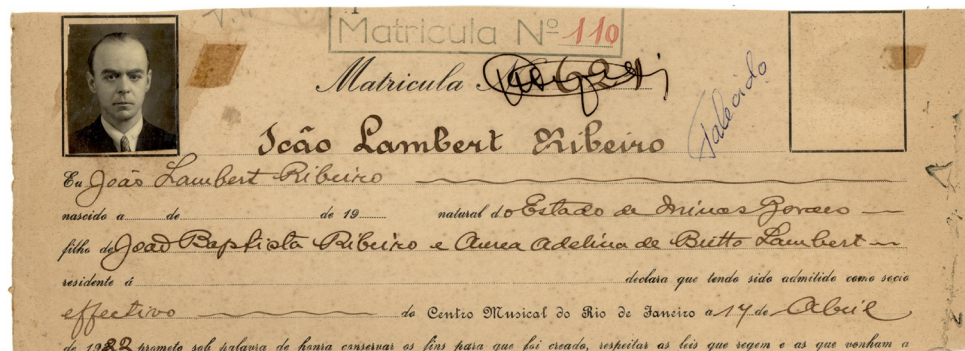 Matricula Nº 110
Matricula
João Lambert Ribeiro
Falecido
Eu João Lambert Ribeiro
nascido a de de 19 natural do Estado de Minas Geraes
filho de João Baptista Ribeiro e Aurea Adelina de Britto Lambert
residente á declara que tendo sido admitido como socio
effectivo do Centro Musical do Rio de Janeiro a 17 de Abril
de 1922 prometo sob palavra de honra conservar os fins para que foi creado, respeitar as leis que regem e as que venham a